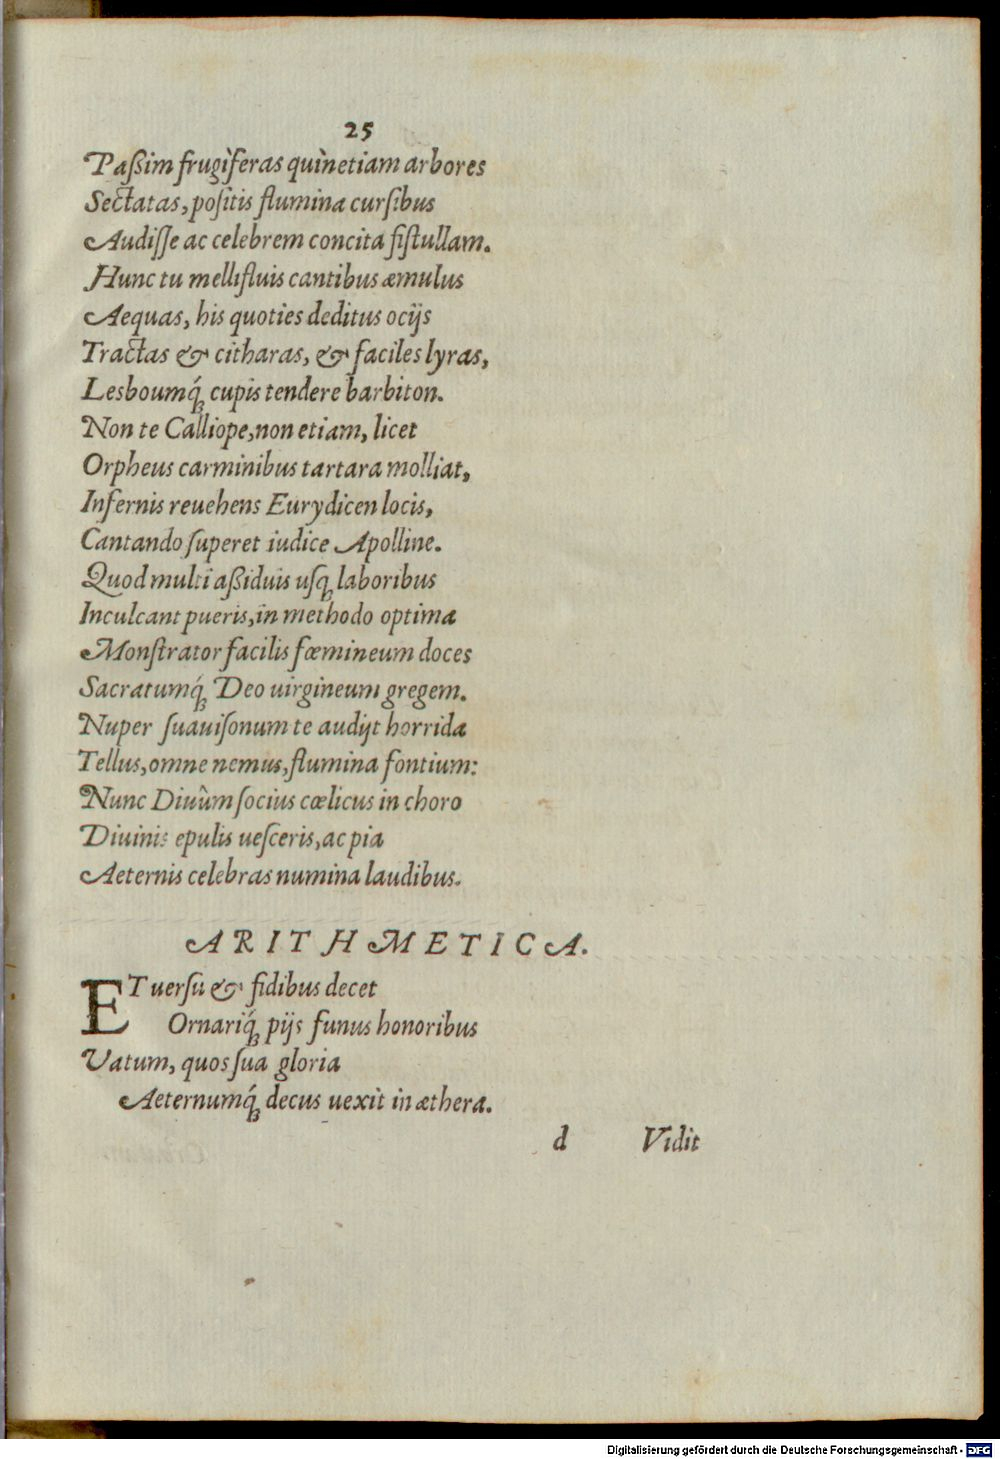 25
Paßim frugìferas quìnetiam arbores
Sectatas, poſitis flumina curſibus
Audiſſe ac celebrem concita fiſtullam.
Hunc tu mellifluis cantibus æmulus
Aequas, his quoties deditus ocijs
Tractas & citharas, & faciles lyras,
Lesboumq́; cupis tendere barbiton.
Non te Calliope, non etiam, licet
Orpheus carminibus tartara molliat,
Infernis reuehens Eurydicen locis,
Cantando ſuperet iudice Apolline.
Quod multi aßiduis uſq; laboribus
Inculcant pueris, in methodo optima
Monſtrator facilis fœmineum doces
Sacratumq́; Deo uirgineum gregem.
Nuper ſuauiſonum te audijt horrida
Tellus, omne nemus, flumina fontium:
Nunc Diuûm ſocius cœlicus in choro
Diuinis epulis ueſceris, ac pia
Aeternis celebras numina laudibus.
ARITHMETICA.
ET uerſu & fidibus decet
Ornariq́; pijs funus honoribus
Vatum, quos ſua gloria
Aeternumq́; decus uexìt in æthera.
d Vidit
Digitalisierung gefördert durch die Deutsche Forschungsgemeinschaft - DFG